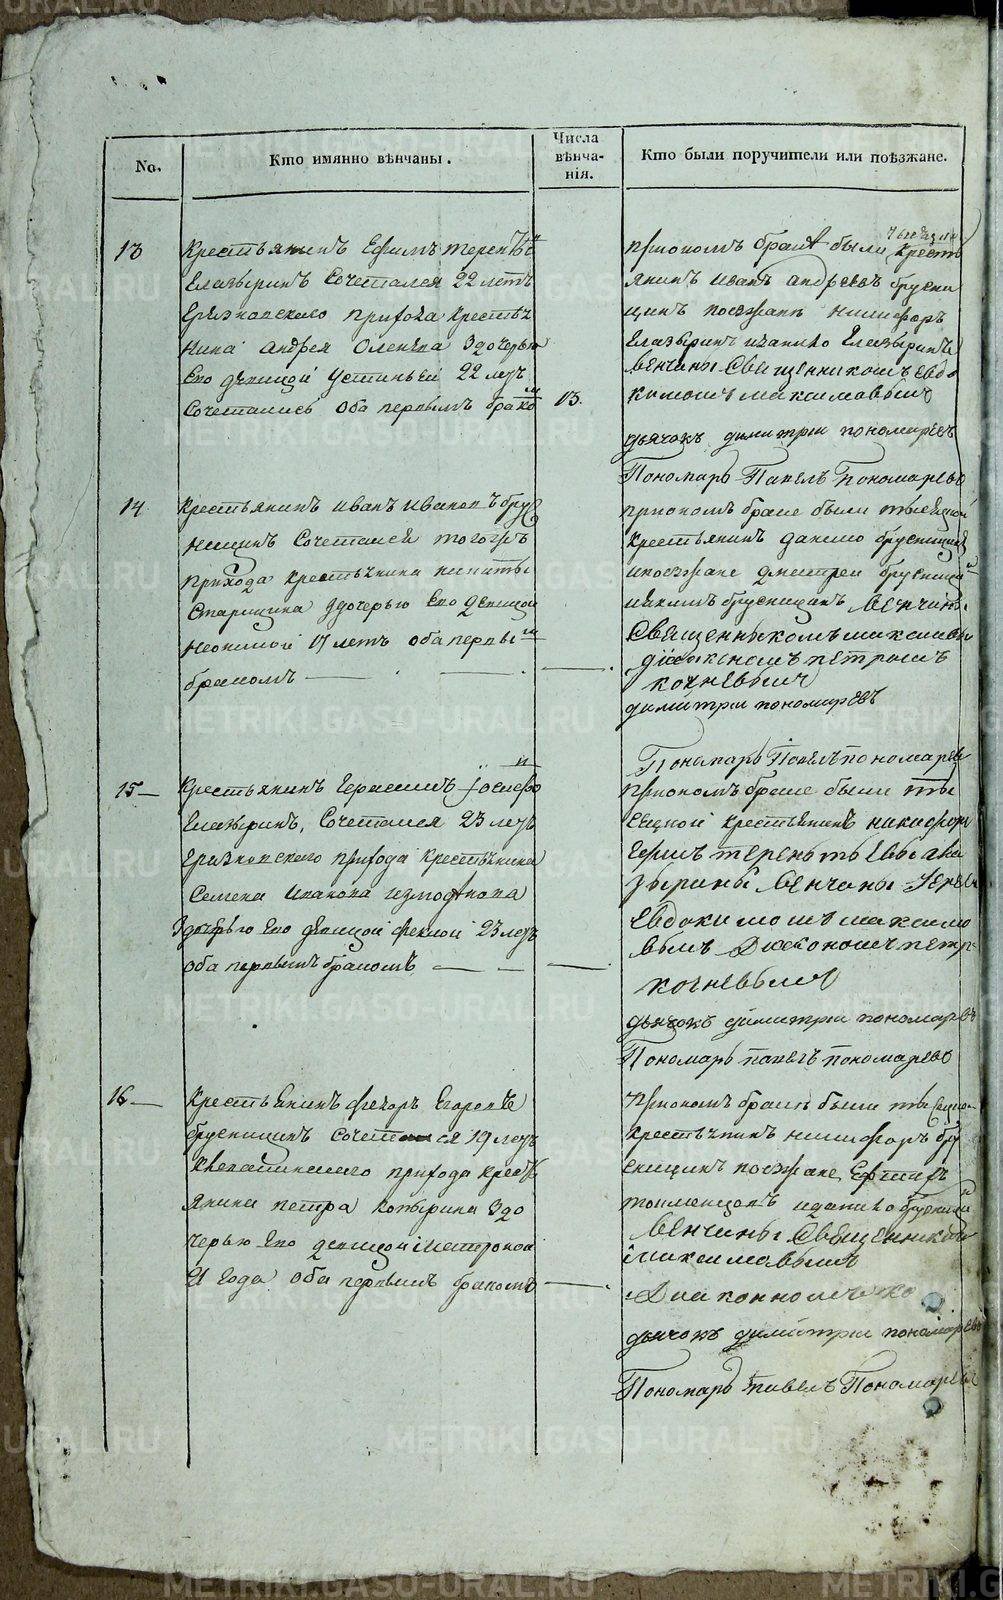 No.
Кто имянно вѣнчаны.
Числа
вѣнча-
нія.
Кто были поручители или поѣзжане.
13
Крестьянинъ Ефимъ Терентьѣ
Елазыринъ сочетался 22 летъ
прихода крестья
нина Андрея Оленева здочерью
Ево девицой Устиньей 22 летъ
Сочетались оба первымъ бракомъ
13.
приономъ браке были тысяцкой кресть
янинъ Иванъ Андреевъ брусни
цинъ поезжане Никифоръ
Елазыринъ Елазыринъ
венчаны Священникомъ Евдо
кимомъ Максимовымъ
дьячокъ димитри пономаревъ
Пономарь Павелъ Пономаревъ
14
Крестьянинъ Иванъ Ивановъ брус
ницинъ Сочетался тогожъ
прихода крестьянина
Старцина здочерью Ево девицой
17 летъ оба первым
бракомъ
приономъ браке были тысяцкой
крестьянинъ данило брусницинъ
ипоезжане дмитреи брусницин
брусницинъ венчаны
Священникомъ максимовы
діакономъ петромъ
кочневымъ
димитри пономаревъ
Пономарь Павелъ пономаревъ
15
Крестьянинъ Герасимъ Іосифо
Елазыринъ, Сочетался 23 летъ
прихода крестьянина
Семена Иванова
здочерью Ево девицой феклой 23 летъ
оба первымъ бракомъ
приономъ браке были ты
сяцкой крестьянинъ никифоръ
Ефимъ терентьевы Ела
зырины венчаны
Евдокимомъ максимо
вымъ Диакономъ петр
кочневымъ
дьячокъ димитри пономаревъ
Пономарь павелъ пономаревъ
16
Крестьянинъ федоръ Егоровъ
брусницинъ сочетался 19 летъ
прихода кресть
янина петра здо
черью Ево девицой
21 года оба первымъ бракомъ
приономъ браке были тысяцкой
крестьянинъ никифоръ бру
сницинъ поезжане Ефимъ
идатило брусницин
венчаны Священником
максимовымъ
Диакономъ
дьячокъ димитри пономаревъ
Пономарь павелъ Пономаревъ
METRIKI.GASO-URAL.RU